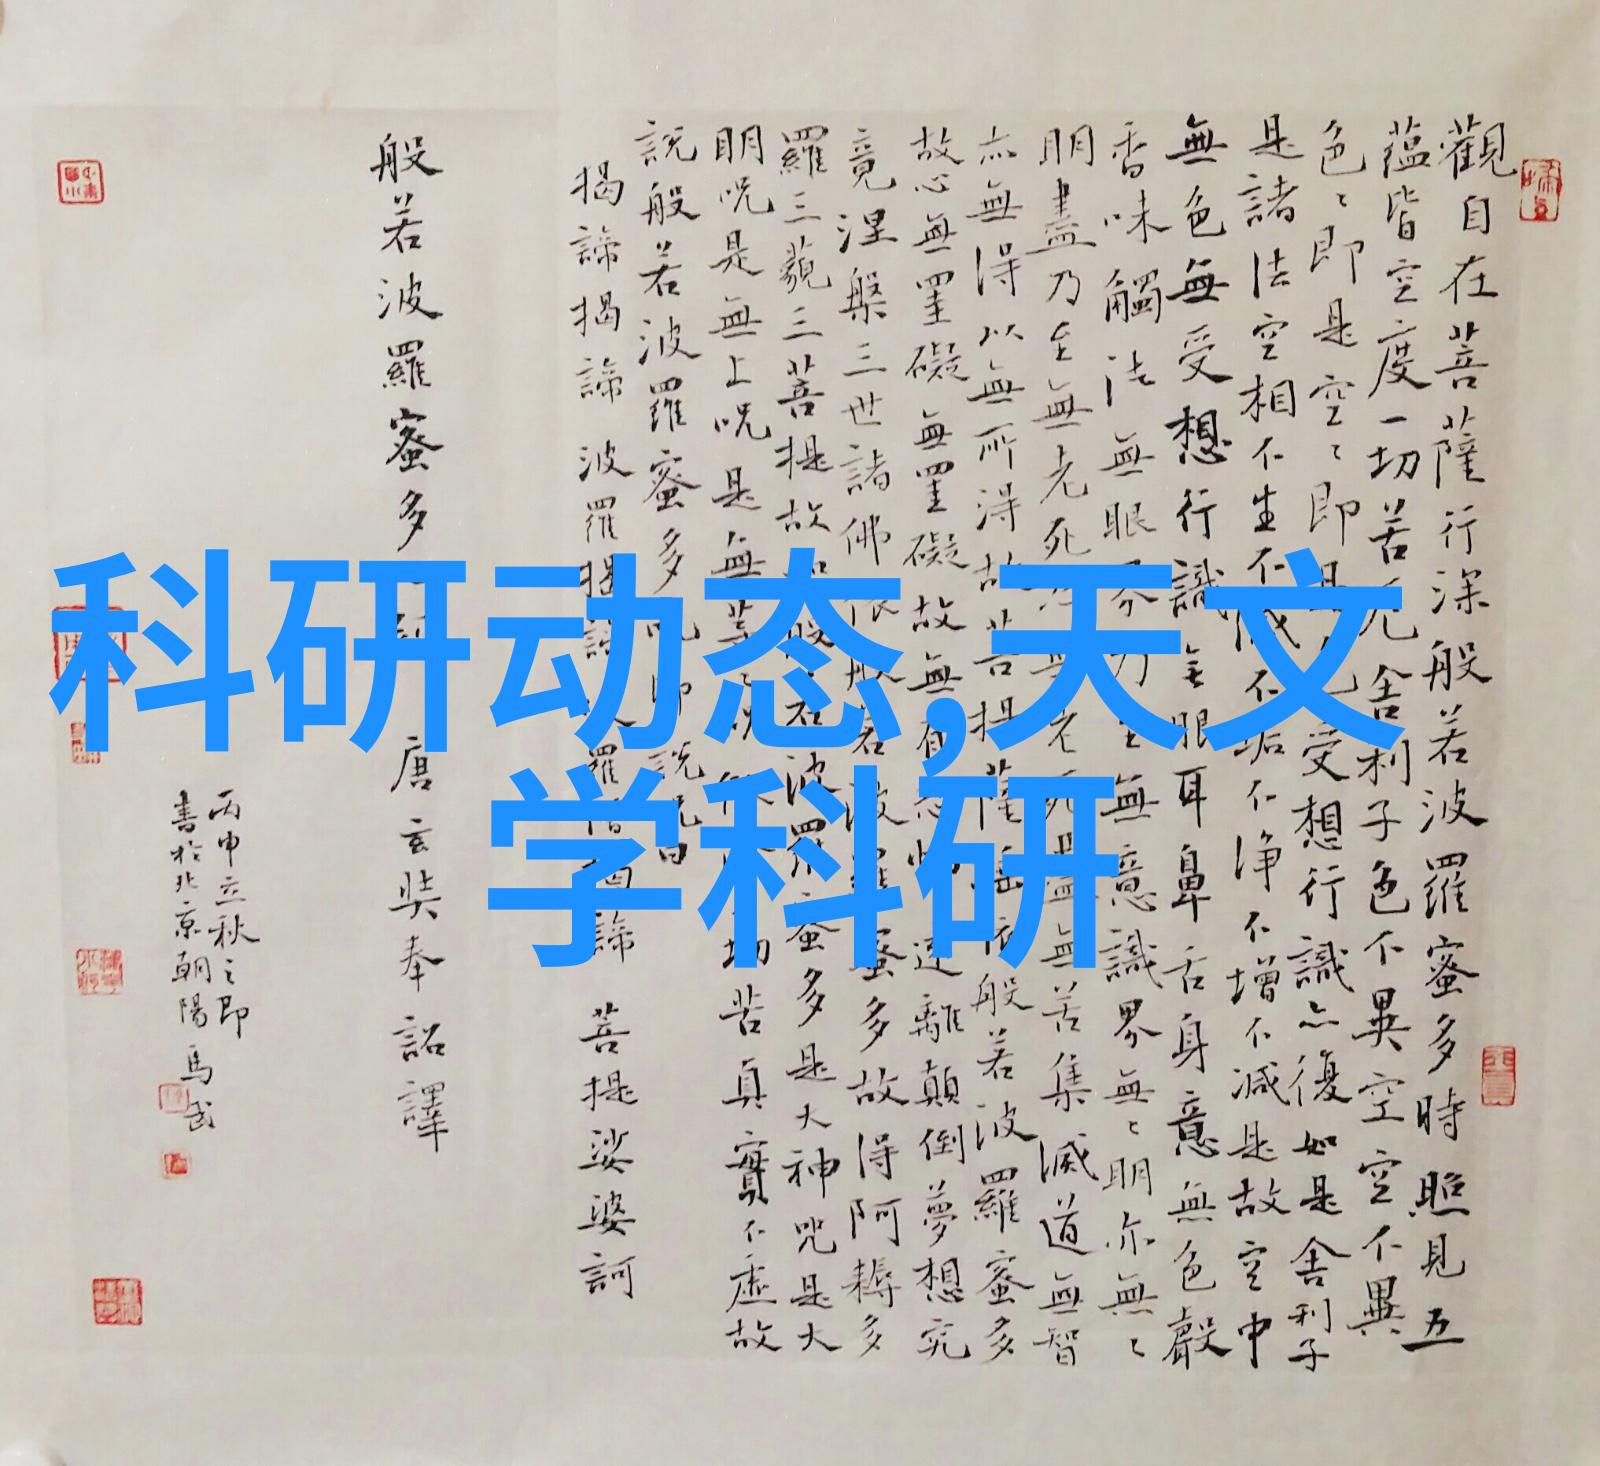 科研动态,天文
学科研
觀自在菩薩行深般若波羅蜜多時照見五
蘊皆空度一切苦厄舍利子色不異空空不異
色〻即是空〻即是色受想行識亦復如是舍利子
是諸法空相不生不滅不垢不淨不增不減是故空中
無色無受想行識無眼耳鼻舌身意無色聲
香味觸法無眼界乃至無意識界無〻明亦無〻
明盡乃至無老死亦無老死盡無苦集滅道無智
亦無得以無所得故菩提薩埵依般若波羅蜜多
故心無罣礙無罣礙故無有恐怖遠離顛倒夢想究
竟涅槃三世諸佛依般若波羅蜜多故得阿耨多
羅三藐三菩提故知般若波羅蜜多是大神咒是大
明呪是無上呪是無等〻呪能除一切苦真實不虛故
說般若波羅蜜多呪即說呪曰
揭諦揭諦波羅揭諦波羅僧揭諦菩提娑婆訶
般若波羅蜜多心經 唐玄奘奉詔譯
丙申立秋之即
書於北京朝陽馬武